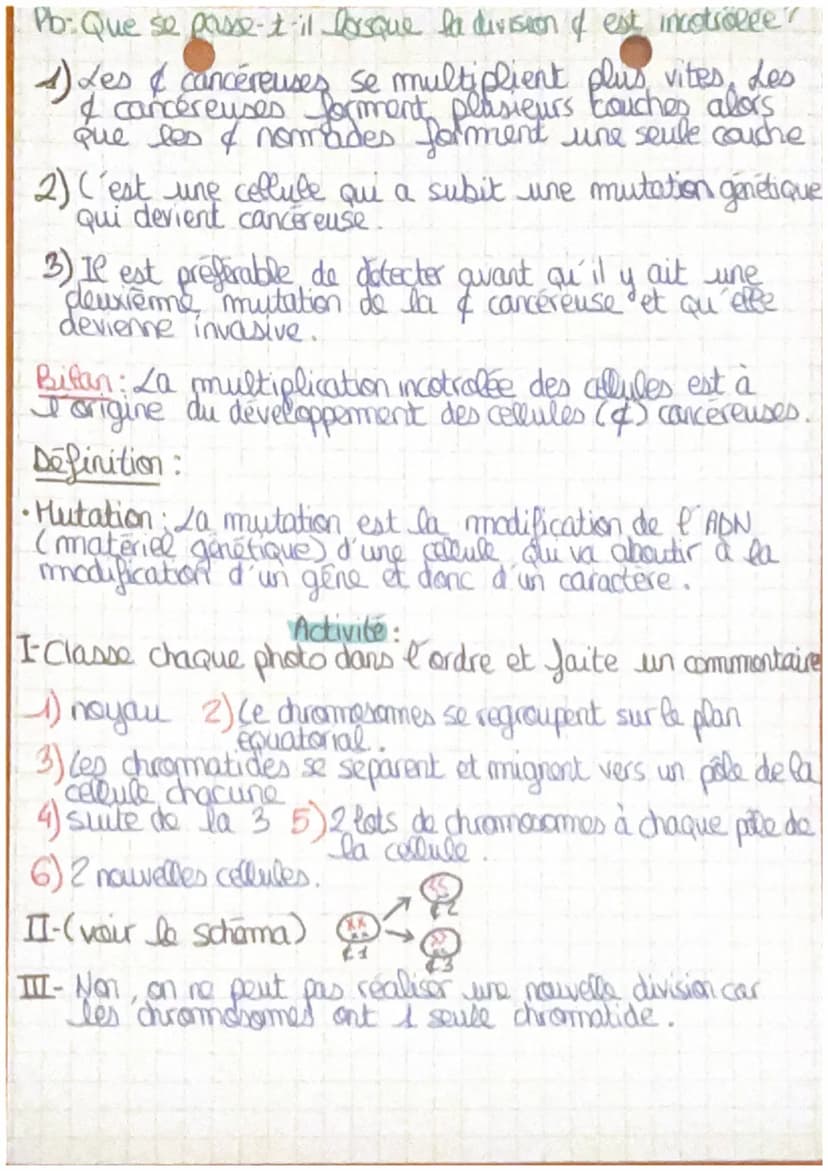 Pb: Que se passe-t-il lorsque la division ¢ est incotrolée?
1) Les ¢ cancéreuses se multiplient plus vites. Les
¢ cancéreuses forment plusieurs couches alors
que les ¢ normades forment une seule couche
2) C'est une cellule qui a subit une mutation génétique
qui devient cancéreuse.
3) Il est préférable de détecter avant qu'il y ait une
deuxième mutation de la ¢ cancéreuse et qu'elle
devienne invasive.
Bilan: La multiplication incotrolée des cellules est à
l'origine du développement des cellules (¢) cancéreuses.
Définition :
• Mutation : La mutation est la modification de l'ADN
(matériel génétique) d'une cellule qui va aboutir à la
modification d'un gène et donc d'un caractère.
Activité :
I- Classe chaque photo dans l'ordre et faite un commentaire
1) noyau 2) Le chromosomes se regroupent sur le plan
équatorial.
3) Les chromatides se séparent et mignent vers un pôle de la
cellule chacune
4) suite de la 3 5) 2 lots de chromosomes à chaque pôle de
la cellule.
6) 2 nouvelles cellules.
II- (voir le schéma)
¢1
¢2
¢3
III- Non, on ne peut pas réaliser une nouvelle division car
les chromosomes ont 1 seule chromatide.